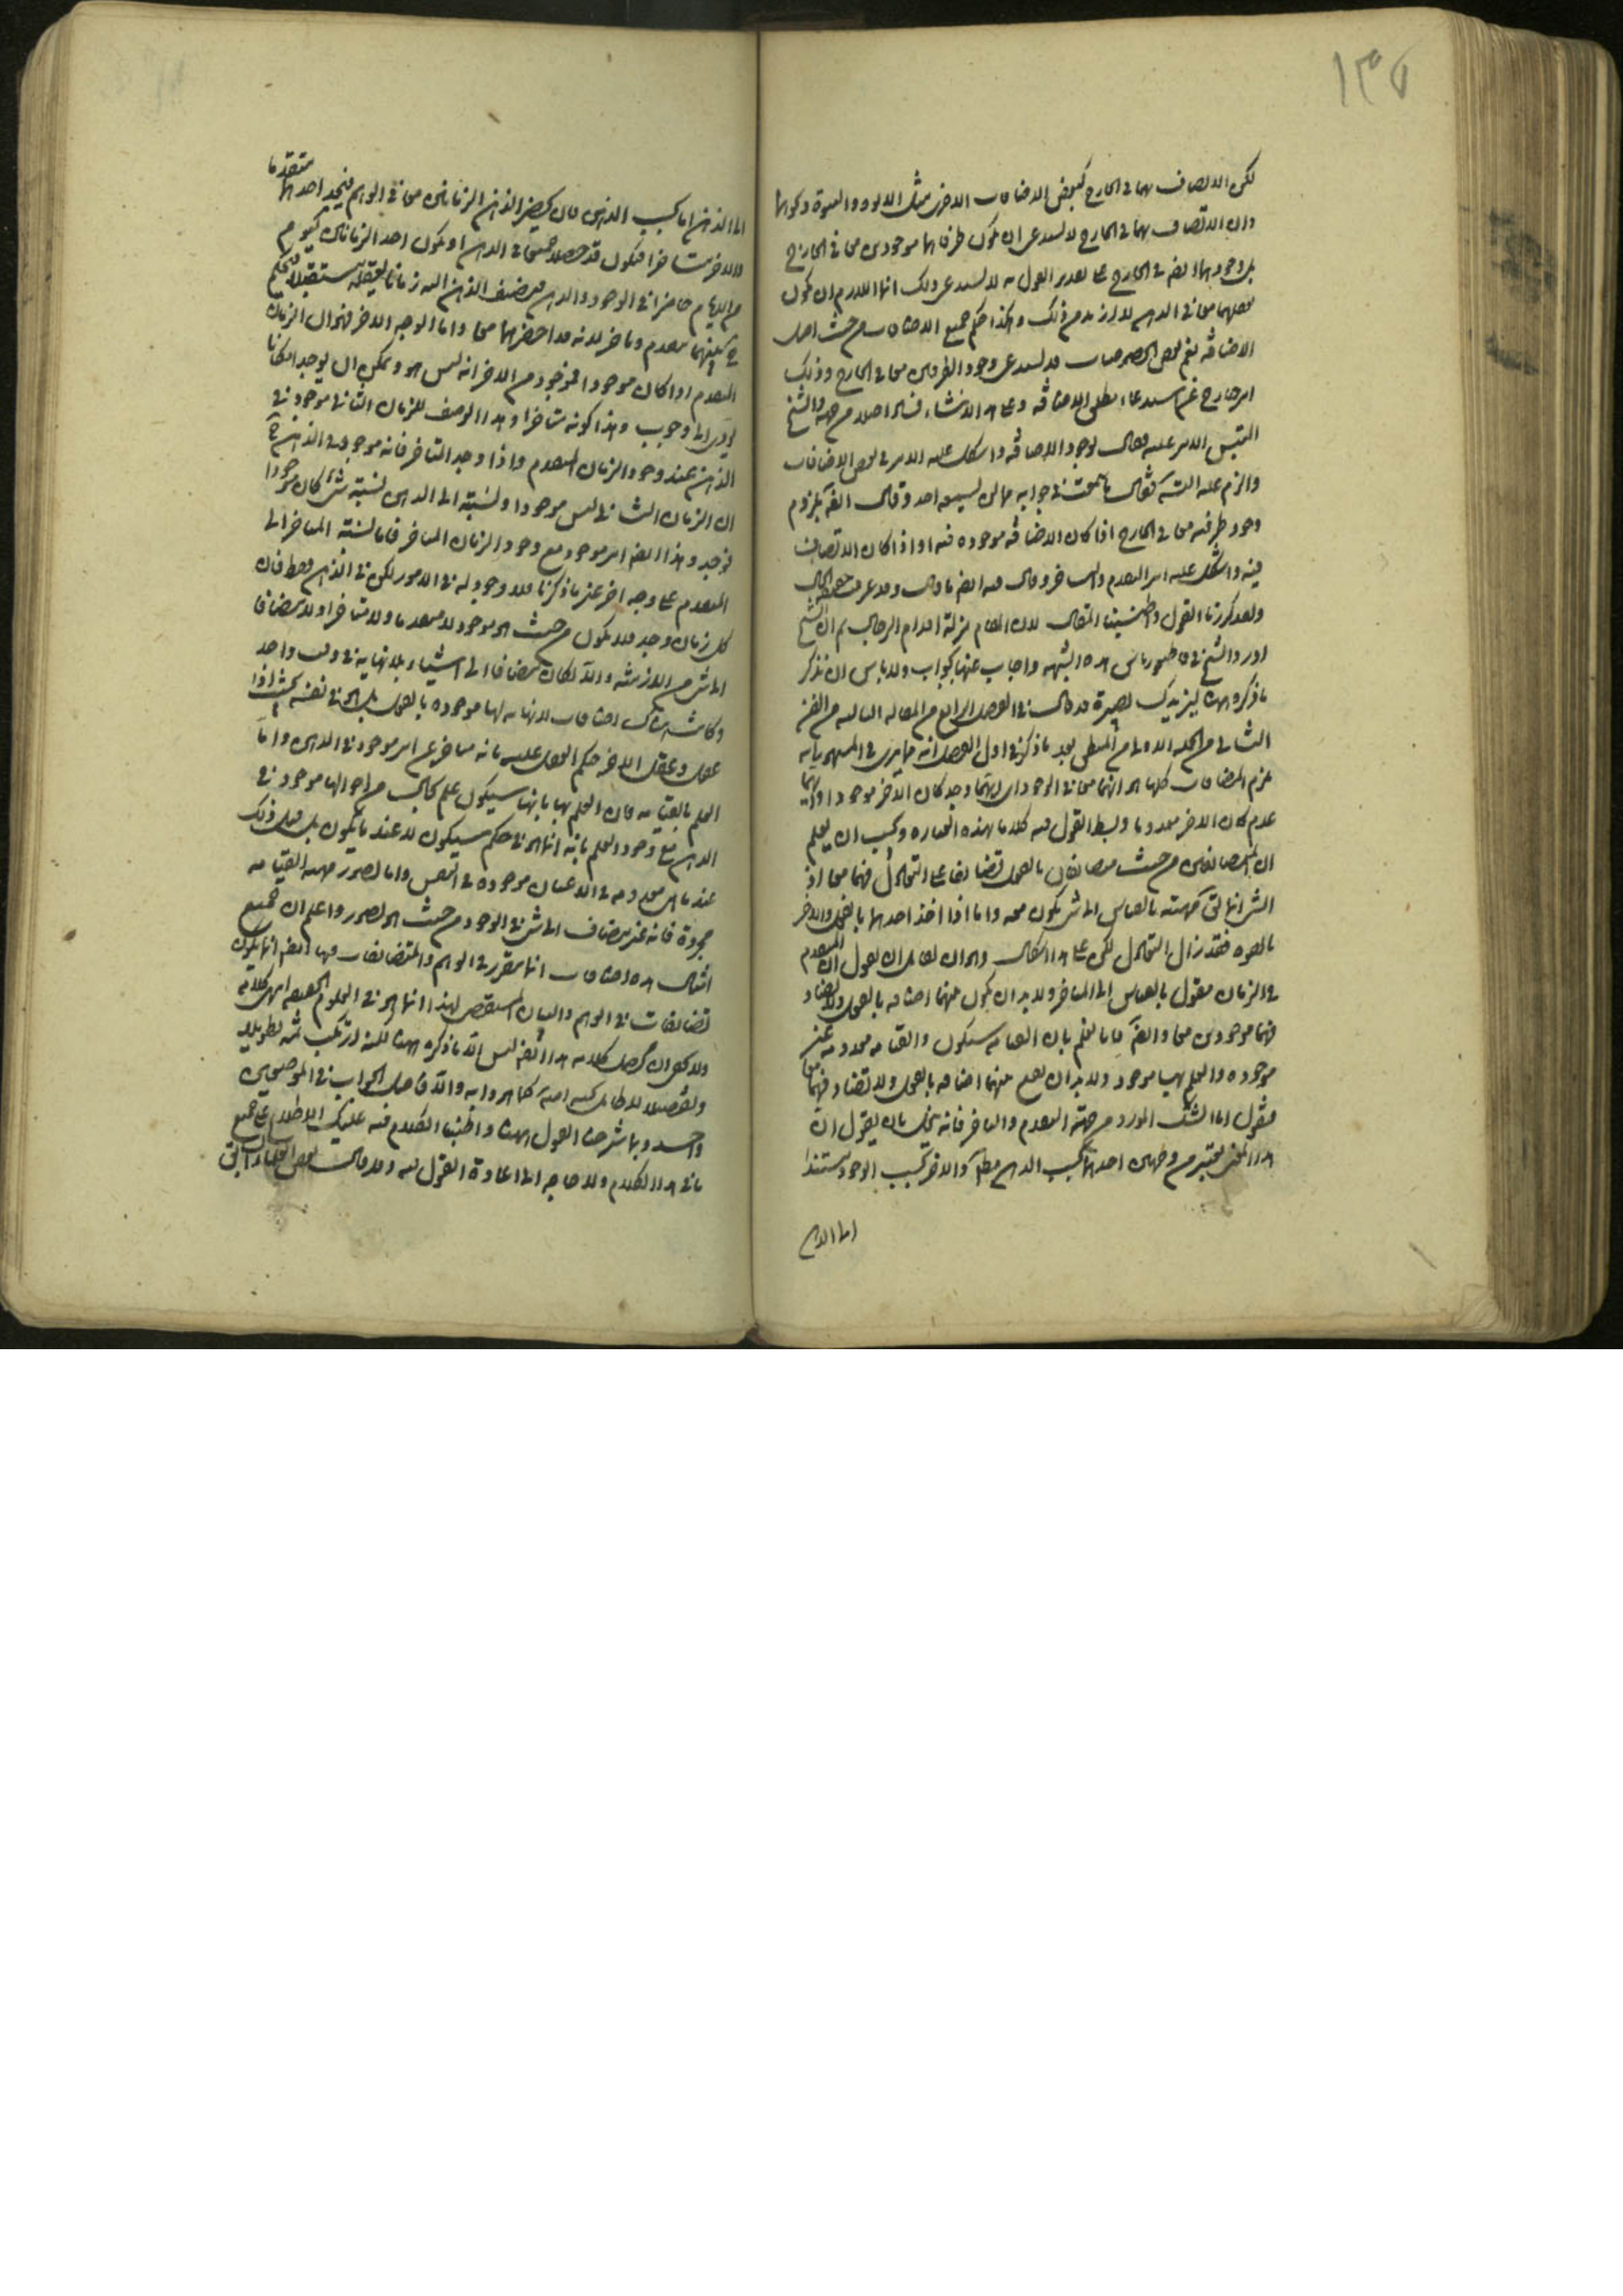 ١٣٧
لكن الاتصاف بهما في الخارج كبعض الاضافات الاخر مثل الابوة والبنوة ونحوها
وان الاتصاف بهما في الخارج لا يستدعي ان يكون طرفاها موجودين معا في الخارج
بل وجودهما ايضا في الخارج على تقدير القول به لا يستدعي ذلك انما اللازم ان يكون
معا في الذهن لا ازيد من ذلك وهكذا حكم جميع الاضافات من حيث اصل
الاضافة نعم بعض الخصوصيات قد يستدعي وجود الطرفين معا في الخارج وذلك
امر خارج عن استدعاء مطلق الاضافة وعلى هذا الانشاء من جهة والشيخ
التبس الامر عليه فقال بوجود الاضافة واشكل عليه الامر في بعض الاضافات
والزم عليه فقال في جوابه وقال ايضا بلزوم
وجود طرفيه معا في الخارج اذا كان الاضافة موجودة فيه او اذا كان الاتصاف
فيه واشكل عليه امر المتقدم والمتاخر وقال فيه ايضا ما قال وقد عرفت حقيقة الحال
ولقد كررنا القول واطنبنا المقال لان المقام مزلة اقدام الرجال ثم ان الشيخ
اورد الشيخ في قاطيغورياس هذه الشبهة واجاب عنها بجواب ولا باس ان نذكر
ما ذكره هناك ليزيدك بصيرة قد قال في الفصل الرابع من المقالة الثالثة من الفن
الثاني من الجملة الاولى من المنطق بعد ما ذكر في اول الفصل انه مما يرى في المشهور انه
يلزم المضافات كلها هو انهما معا في الوجود اي ايهما وجد كان الاخر موجودا وايهما
عدم كان الاخر معدوما وبسط القول فيه كلاما بهذه العبارة ويجب ان يعلم
ان المتضايفين من حيث متضايفان بالفعل تضايفا على التعادل فهما معا اذ
الشيء انما ماهيته بالقياس الى شيء يكون معه واما اذا اخذ احدهما بالفعل والاخر
بالقوة فقد زال التعادل لكن على هذا اشكال وهو ان لقائل ان يقول ان المتقدم
في الزمان مقول بالقياس الى المتاخر ولا بد ان يكون بينهما اضافة بالفعل ولا
فهما موجودين معا وايضا فانا نعلم بان القيامة ستكون والقيامة معدومة غير
موجودة والعلم بها موجود ولا بد ان يقع بينهما اضافة بالفعل ولا فهما معا
فنقول اما الشك المورد من جهة المتقدم والمتاخر فانه ينحل بان يقول ان
هذا المعنى يعتبر من وجهين احدهما بحسب الذهن مطلقا والاخر بحسب الوجود مستندا
اما الذهن
الى الذهن اما بحسب الذهن فان يحضر الذهن الزمانين معا في الوهم فيجد احدهما متقدما
والاخر متاخرا فيكون قد حصلا جميعا في الذهن او يكون احد الزمانين كيوم
من الايام حاضرا في الوجود والذهن فيضيف الذهن اليه زمانا يعقله مستقبلا فيحكم
ح بينهما بتقدم وتاخر لانه قد احضرهما معا واما الوجه الاخر فهو ان الزمان
المتقدم اذا كان موجودا فموجود من الاخر انه ليس هو ويمكن ان يوجد امكانا
يؤدي الى وجوب وهذا كونه متاخرا وهذا الوصف للزمان الثاني موجود في
الذهن عند وجود الزمان المتقدم واذا وجد المتاخر فانه موجود في الذهن ح
ان الزمان الثاني ليس موجودا ونسبته الى الذهن نسبة شيء كان موجودا
فوجد وهذا ايضا امر موجود مع وجود الزمان المتاخر فاما نسبة المتاخر الى
المتقدم على وجه اخر غير ما ذكرنا فلا وجود له في الامور لكن في الذهن فقط فان
كل زمان وجد فلا يكون من حيث هو موجود لا متقدما ولا متاخرا ولا مضافا
الى شيء من الازمنة والا لكان مضافا الى اشياء بلا نهاية في وقت واحد
وكانت هناك اضافات لا نهاية لها موجودة بالفعل بل هو في نفسه بحيث اذا
عقل وعقل الاخر حكم العقل عليه بانه متاخر عن امر موجود في الذهن واما
العلم بالقيامة فان العلم بها بانها سيكون علم بحال من احوالها موجود في
الذهن مع وجود العلم بانه انما هو في حكم سيكون لا عند ما يكون بل قبل ذلك
عند ما هي معدومة في الاعيان موجودة في النفس واما تصور مهية القيامة
مجردة فانه غير مضاف الى شيء في الوجود من حيث هو تصور واعلم ان جميع
امثال هذه اضافات انما تتقرر في الوهم والمتضايفات فيها ايضا انما يكون
تضايفات في الوهم والبيان المستقصى لهذا انما هو في العلوم الحقيقية انتهى كلامه
ولا يخفى ان محصل كلامه هذا ايضا ليس الا ما ذكره ههنا لكنه ارتكب ثمة تطويلا
وتفصيلا لا طائل تحته كما هو دابه والا فاصل الجواب في الموضعين
واحد وبما شرحنا القول ههنا واطنبنا الكلام فيه عليك الاطلاع على جميع
ما في هذا الكلام ولا حاجة الى اعادة القول فيه وقد قال بعض العلماء